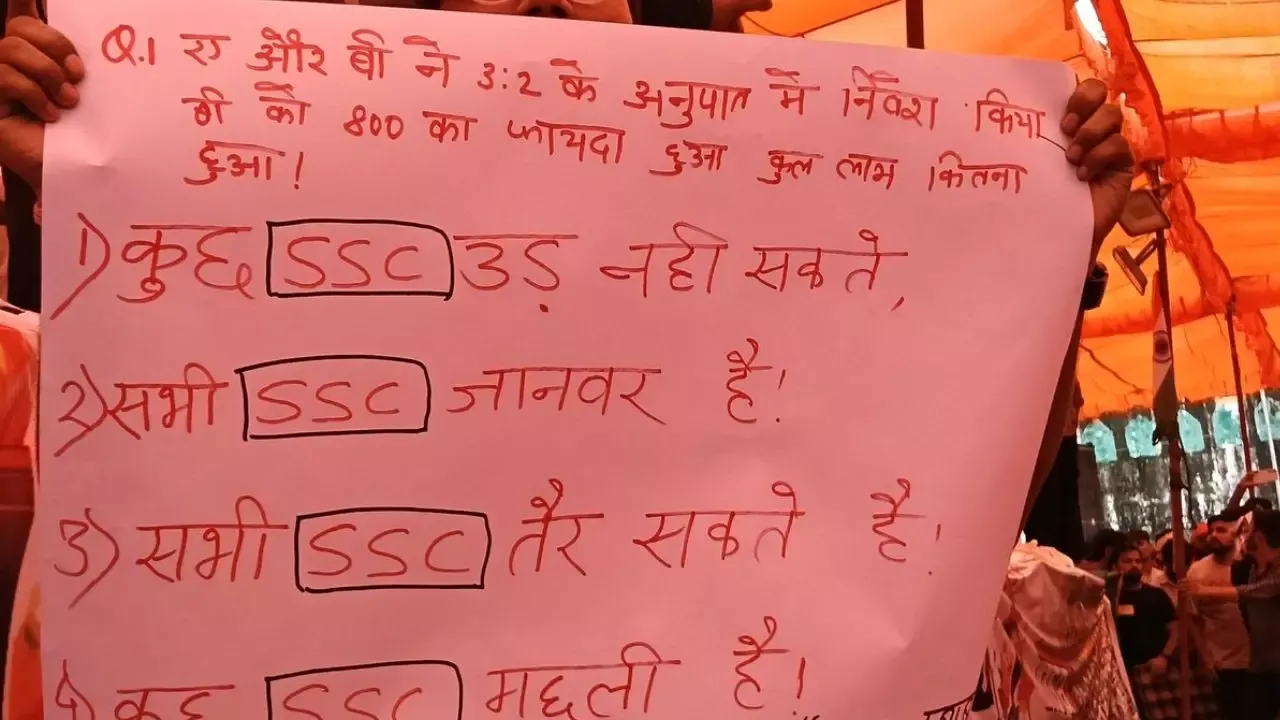 Q.1 ए और बी ने 3:2 के अनुपात में निवेश किया
बी को 800 का फायदा हुआ कुल लाभ कितना
हुआ!
1) कुछ SSC उड़ नही सकते,
2) सभी SSC जानवर है!
3) सभी SSC तैर सकते है!
4) कुछ SSC मछली है!